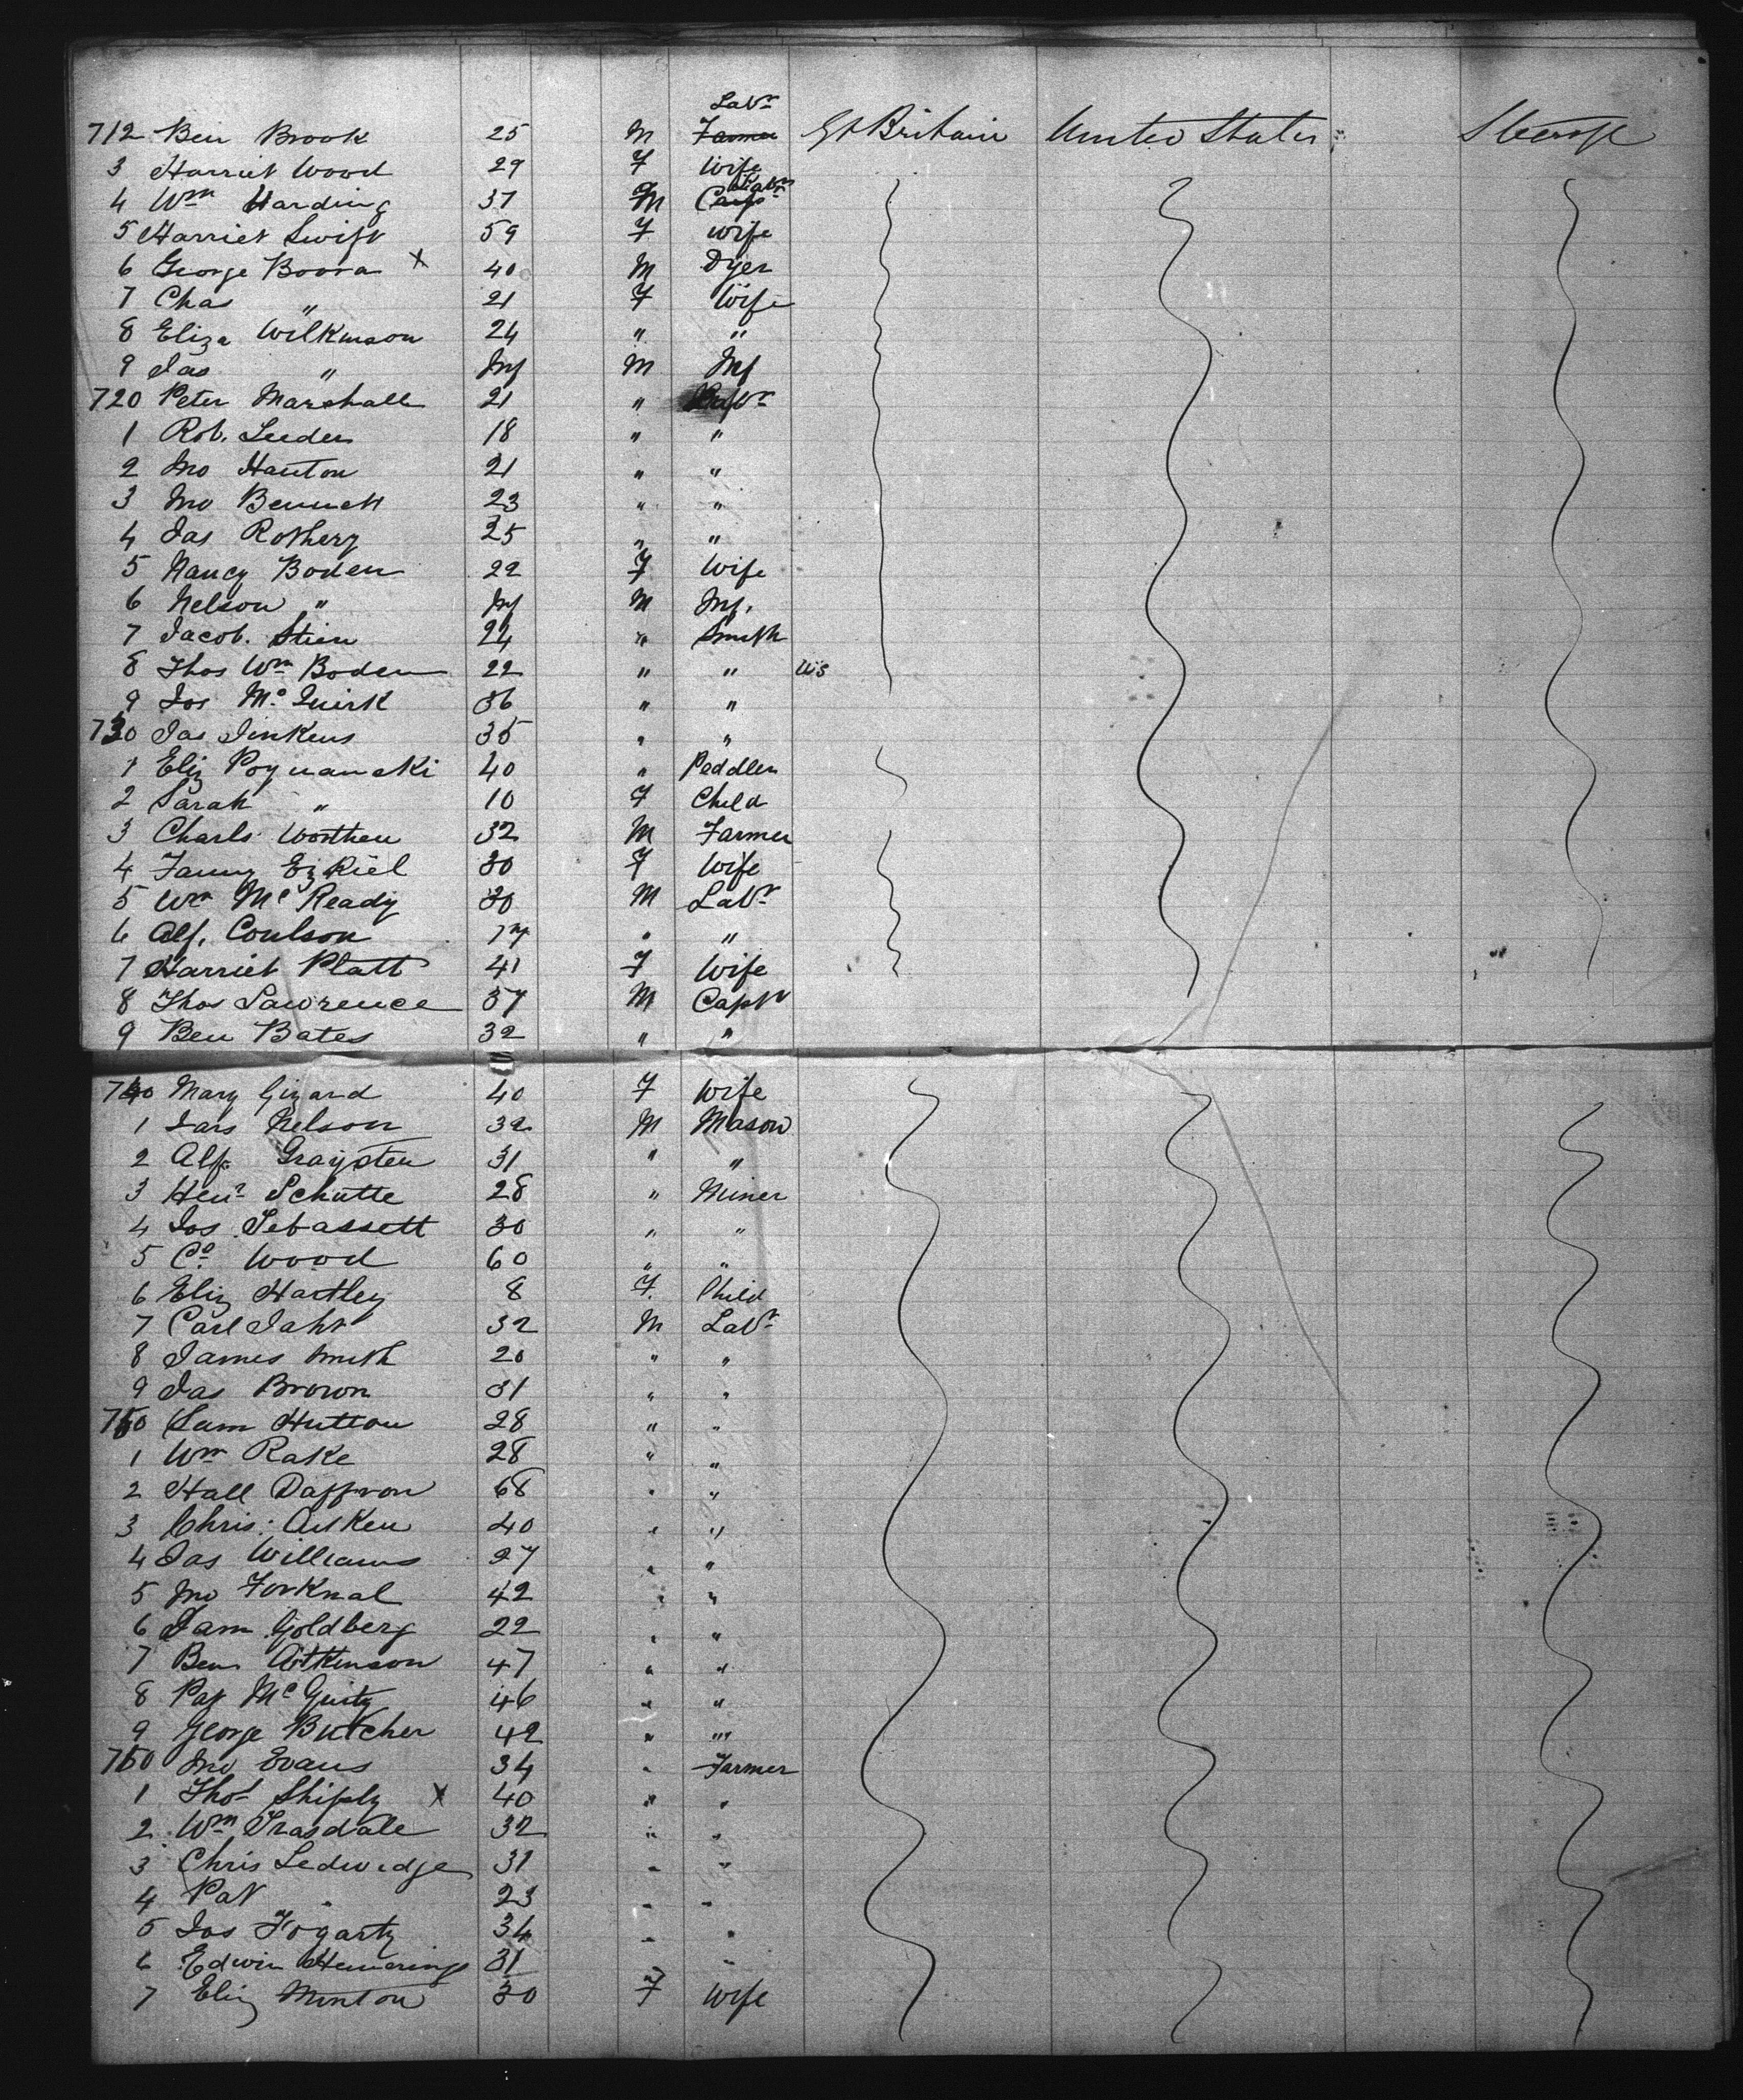 712 Ben Brook 25 M Labr Farmer Gt Britain United States Steerage
3 Harriet Wood 29 F Wife
4 Wm Harding 37 M Labr
5 Harriet Swift 59 F wife
6 George Boova X 40 M Dyer
7 Chas " 21 F Wife
8 Eliza Wilkinson 24 " "
9 Jas " Inf M Inf
720 Peter Marshall 21 " Labr
1 Rob. Leeden 18 " "
2 Jno Hanton 21 " "
3 Jno Bennett 23 " "
4 Jas Rothery 25 " "
5 Nancy Boden 22 F Wife
6 Nelson " Inf M Inf.
7 Jacob. Stien 24 " Smith
8 Thos Wm Boden 22 " " US
9 Jos Mc Quirk 36 " "
730 Jas Jenkens 35 " "
1 Eliz Poznanski 40 " Peddler
2 Sarah " 10 F Child
3 Charls Worthen 32 M Farmer
4 Fanny Ezkiel 30 F Wife
5 Wm Mc Ready 30 M Labr
6 Alf. Coulson 17 " "
7 Harriet Platt 41 F Wife
8 Thos Lawrence 37 M Capt
9 Ben Bates 32 " "
740 Mary Gizard 40 F Wife
1 Lars Nelson 32 M Mason
2 Alf. Graysten 31 " "
3 Henr Schutte 28 " Miner
4 Jos Sebassett 30 " "
5 Co Wood 60 " "
6 Eliz Hartley 8 F. Child
7 Carl Jahr 32 M Labr
8 James Smith 20 " "
9 Jas Brown 31 " "
750 Sam Hutton 28 " "
1 Wm Rake 28 " "
2 Hall Daffron 68 " "
3 Chris: Aitken 40 " "
4 Jas Williams 27 " "
5 Jno Forknal 42 " "
6 Sam Goldberg 22 " "
7 Ben Aitkinson 47 " "
8 Pat Mc Ginty 46 " "
9 George Butcher 42 " "
760 Jno Evans 34 " Farmer
1 Thos Shiply X 40 " "
2 Wm Trasdale 32 " "
3 Chris Ledwedge 31 " "
4 Pat " 23 " "
5 Jos Fogarty 34 " "
6 Edwin Hemmings 31 "
7 Eliz Minton 30 F Wife